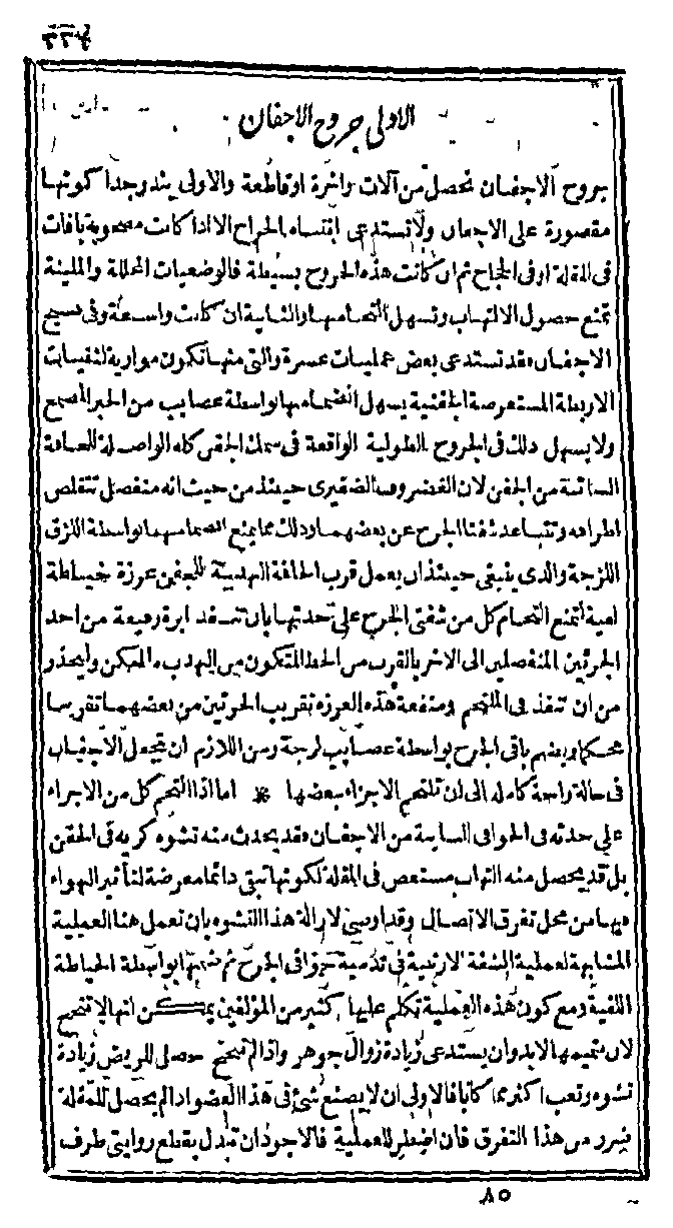 ٣٣٧
الاولى جروح الاجفان
جروح الاجفان تحصل من آلات واخزة اوقاطعة والاولى يندر وجدا كونها
مقصورة على الاجفان ولا تستدعى انتباه الجراح الا اذا كانت مصحوبة بافات
فى المقلة اوفى الحجاج ثم ان كانت هذه الجروح بسيطة فالوضعيات المحللة والملينة
تمنع حصول الالتهاب وتسهل التحامها والثانية ان كانت واسعة وفى نسيج
الاجفان فقد تستدعى بعض عمليات عسرة والتى منها تكون موازية لثنيات
الاربطة المستعرضة الجفنية يسهل انضمامها بواسطة عصايب من الحبر المصمغ
ولا يسهل ذلك فى الجروح الطولية الواقعة فى سمك الجفن كله الواصلة للحافة
السائبة من الجفن لان الغضروف الضفيرى حينئذ من حيث انه منفصل تتقلص
اطرافه وتتباعد شفتا الجرح عن بعضهما وذلك مما يمنع انضمامهما بواسطة اللزق
اللزجة والذى ينبغى حينئذ ان يعمل قرب الحافة الهدبية للجفن غرزة خياطة
لفية لتمنع التحام كل من شفتى الجرح على حدتها بان تنفذ ابرة رفيعة من احد
الجزئين المنفصلين الى الاخر بالقرب من الخط المتكون من الهدب المكن وليحذر
من ان تنفذ فى الملتحم ومنفعة هذه الغرزة تقريب الجزئين من بعضهما تقريبا
محكما ويضم باقى الجرح بواسطة عصايب لزجة ومن اللازم ان تجعل الاجفان
فى حالة راحة كامله الى ان تلتحم الاجزاء ببعضها * اما اذا التحم كل من الاجزاء
على حدته فى الحوافى السايبة من الاجفان فقد يحدث منه تشوه كريه فى الجفن
بل قد يحصل منه التهاب مستعص فى المقلة لكونها تبقى دائما معرضة لتأثير الهواء
فيها من محل تفرق الاتصال وقد اوصى لازالة هذا التشوه بان تعمل هنا العملية
المشابهة لعملية الشفة الارنبية فى تدمية حوافى الجرح ثم ضمها بواسطة الخياطة
اللفية ومع كون هذه العملية تكلم عليها كثير من المؤلفين يمكن انها لا تنجح
لان تتميمها لابد وان يستدعى زيادة زوال جوهر واذا لم تنجح حصل للمريض زيادة
تشوه وتعب اكثر مما كانا فالاولى ان لا يصنع شئ فى هذا العضو اذا لم يحصل للمقلة
ضرر من هذا التفرق فان اضطر للعملية فالاجود ان تبدل بقطع زوايتى طرف
٨٥